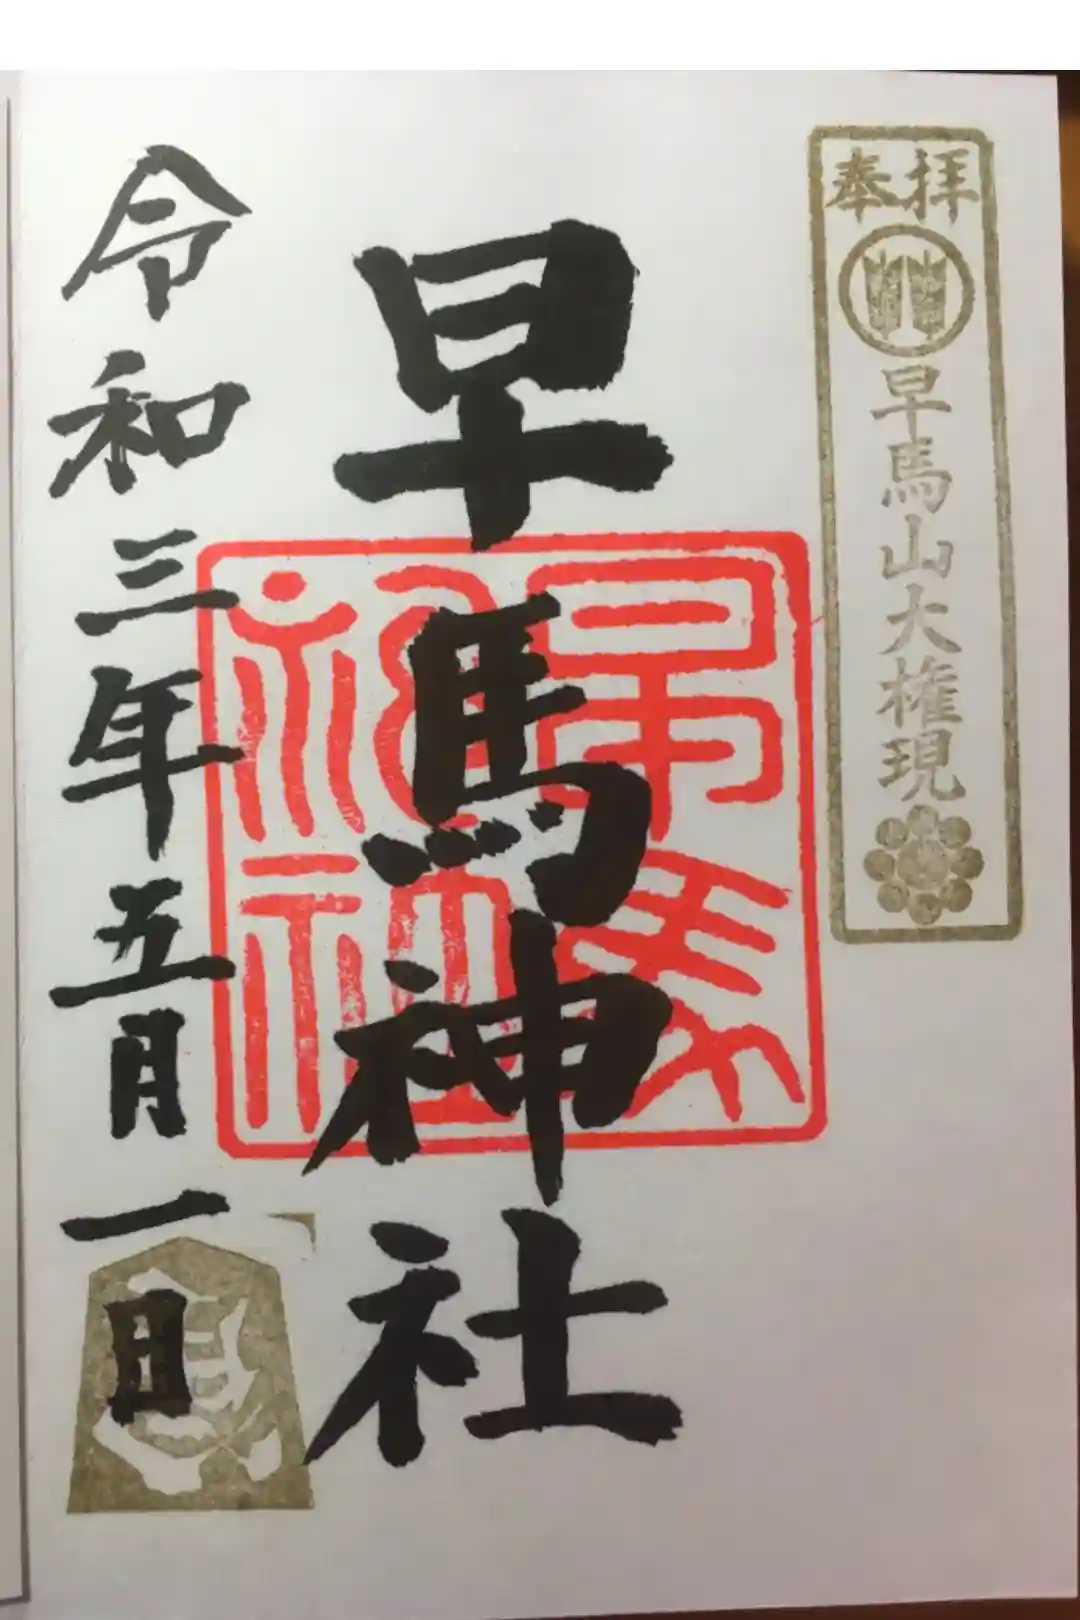 奉拝
早馬山大権現
早馬神社
早馬神社
令和三年五月一日